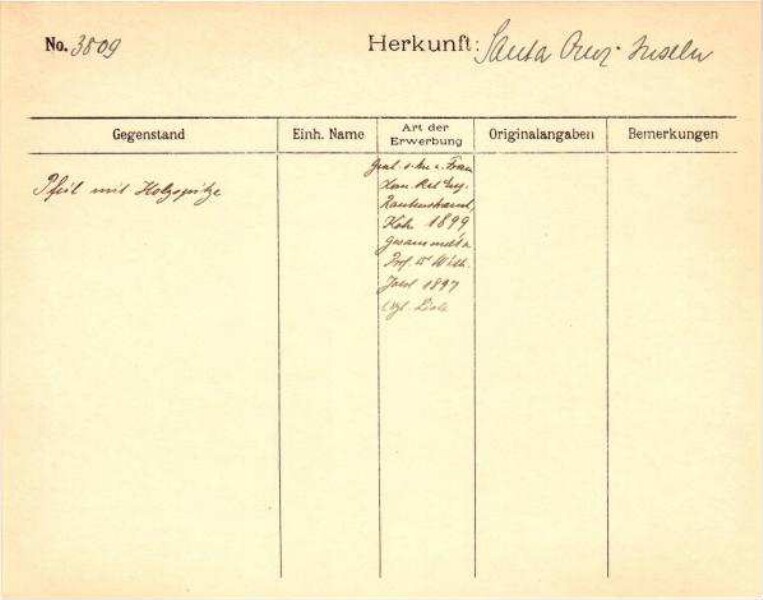 No. 3809 Herkunft: Santa Cruz-Inseln
Gegenstand Einh. Name Art der Erwerbung Originalangaben Bemerkungen
Pfeil mit Holzspitze
Frau
Eug.
Rautenstrauch
1899
gesammelt v.
Prof. Dr Wilh.
Joest 1897
vgl. Liste